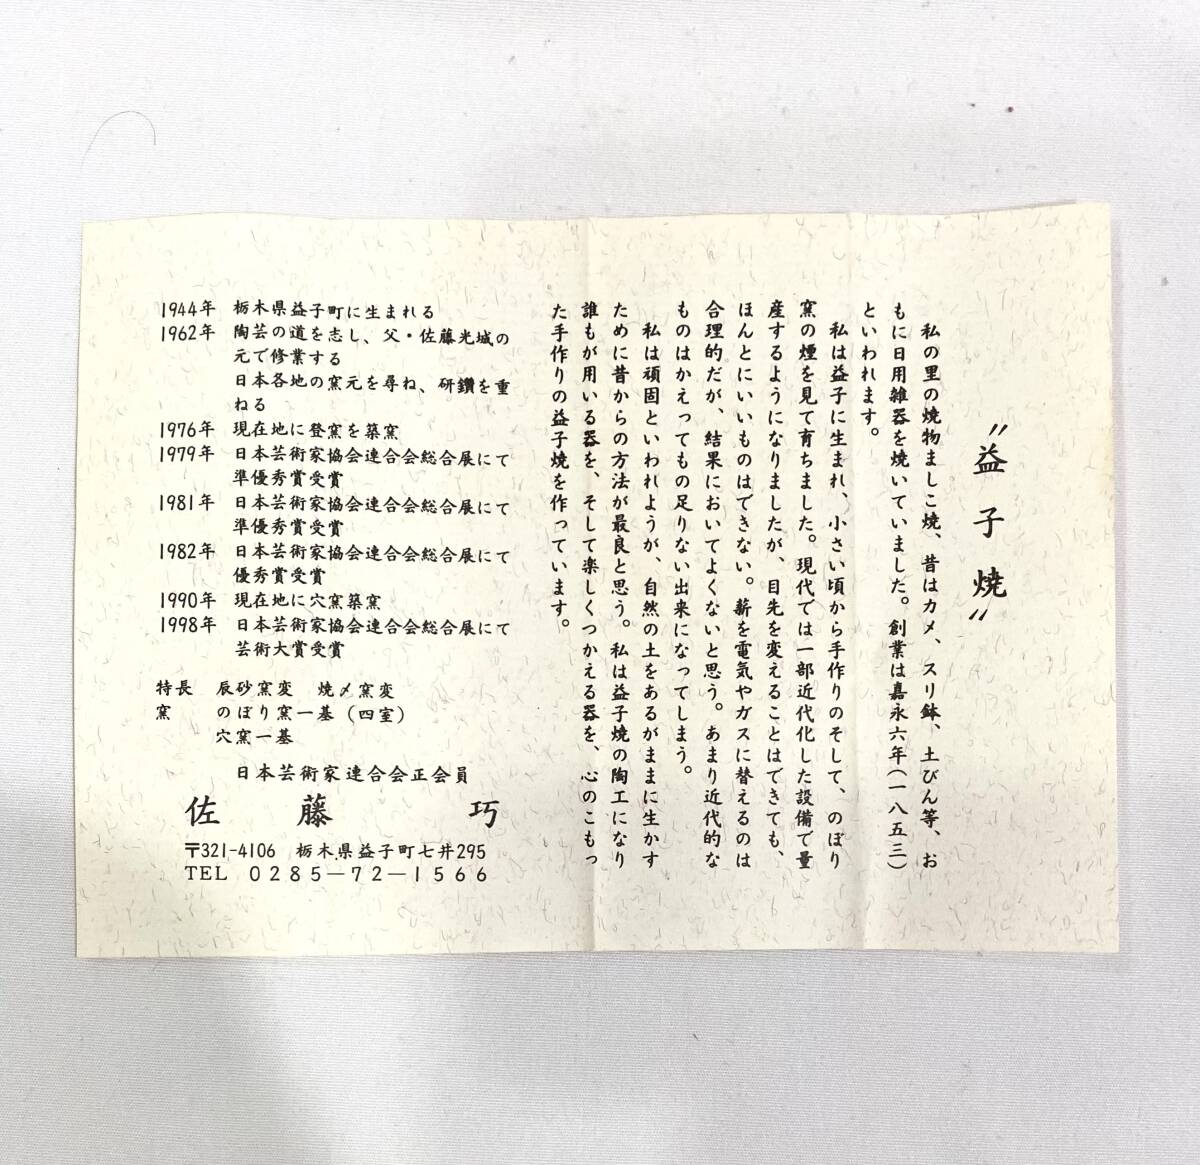 〝益子焼〟
私の里の焼物ましこ焼、昔はカメ、スリ鉢、土びん等、お
もに日用雑器を焼いていました。創業は嘉永六年(一八五三)
といわれます。
私は益子に生まれ、小さい頃から手作りのそして、のぼり
窯の煙を見て育ちました。現代では一部近代化した設備で量
産するようになりましたが、目先を変えることはできても、
ほんとにいいものはできない。薪を電気やガスに替えるのは
合理的だが、結果においてよくないと思う。あまり近代的な
ものはかえってもの足りない出来になってしまう。
私は頑固といわれようが、自然の土をあるがままに生かす
ために昔からの方法が最良と思う。私は益子焼の陶工になり
誰もが用いる器を、そして楽しくつかえる器を、心のこもっ
た手作りの益子焼を作っています。
1944年 栃木県益子町に生まれる
1962年 陶芸の道を志し、父・佐藤光城の
元で修業する
日本各地の窯元を尋ね、研鑽を重
ねる
1976年 現在地に登窯を築窯
1979年 日本芸術家協会連合会総合展にて
準優秀賞受賞
1981年 日本芸術家協会連合会総合展にて
準優秀賞受賞
1982年 日本芸術家協会連合会総合展にて
優秀賞受賞
1990年 現在地に穴窯築窯
1998年 日本芸術家協会連合会総合展にて
芸術大賞受賞
特長 辰砂窯変 焼〆窯変
窯 のぼり窯一基(四室)
穴窯一基
日本芸術家連合会正会員
佐藤 巧
〒321-4106 栃木県益子町七井295
TEL 0285-72-1566